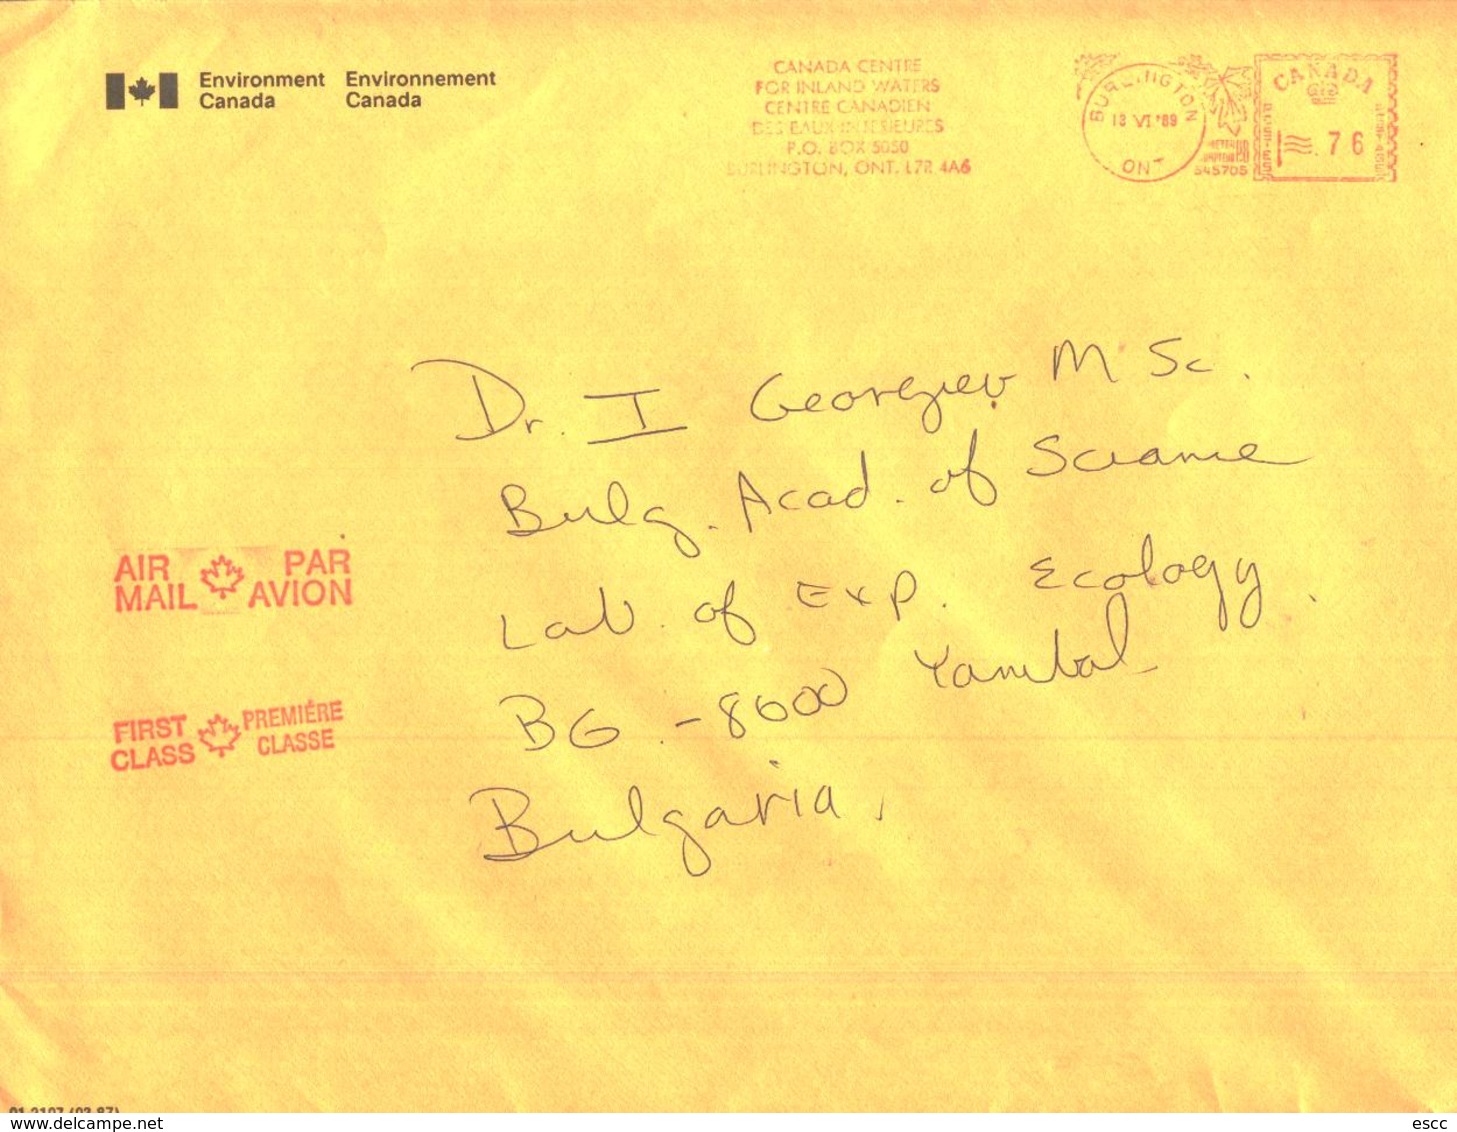 Environment Environnement
Canada Canada
CANADA CENTRE
FOR INLAND WATERS
CENTRE CANADIEN
DES EAUX INTERIEURES
P.O. BOX 5050
BURLINGTON, ONT. L7R 4A6
BURLINGTON
VI '89
ONT
545705
CANADA
.76
Dr. I Georgiev M Sc.
Bulg. Acad. of Science
Lab. of Exp. Ecology.
BG. -8600 Yambol
Bulgaria,
AIR PAR
MAIL AVION
FIRST PREMIÈRE
CLASS CLASSE
www.delcampe.net
escc